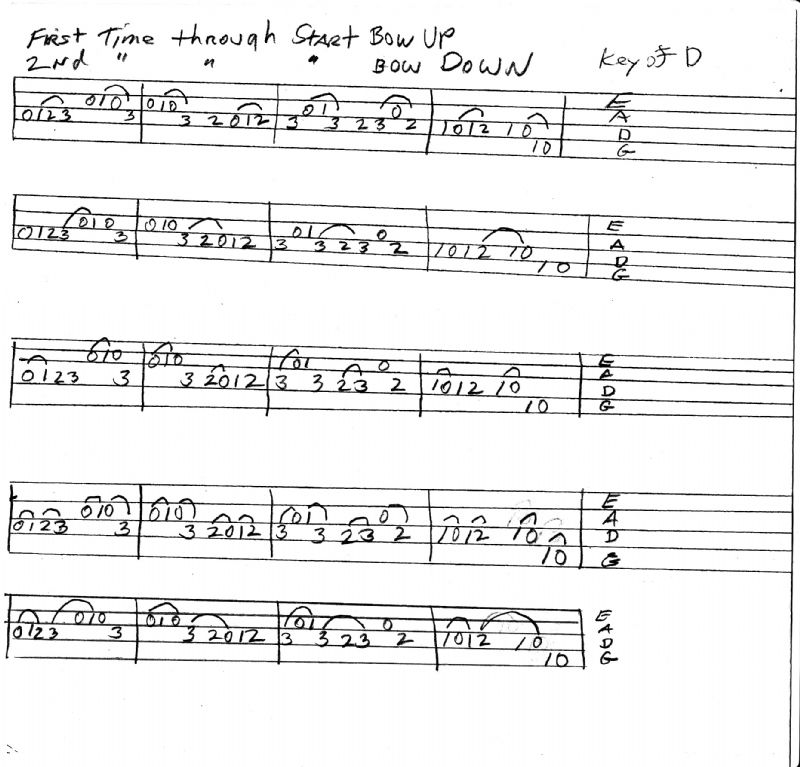 First Time through Start Bow Up
2nd " " " Bow Down Key of D
0123 010 3 010 3 2012 3 01 3 23 0 2 1012 10 10
E
A
D
G
0123 010 3 010 3 2012 3 01 3 23 0 2 1012 10 10
E
A
D
G
0123 010 3 010 3 2012 3 01 3 23 0 2 1012 10 10
E
A
D
G
0123 010 3 010 3 2012 3 01 3 23 0 2 1012 10 10
E
A
D
G
0123 010 3 010 3 2012 3 01 3 23 0 2 1012 10 10
E
A
D
G